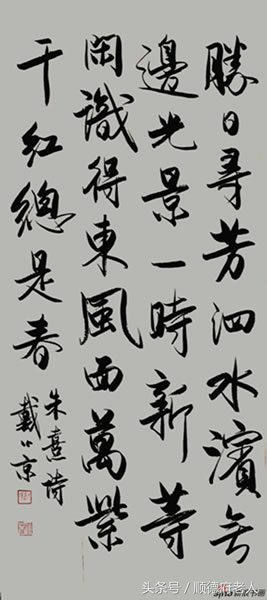 勝日尋芳泗水濱無
邊光景一時新等
閑識得東風面萬紫
千紅總是春
朱熹詩
戴小京
头条号 / 顺德府老人